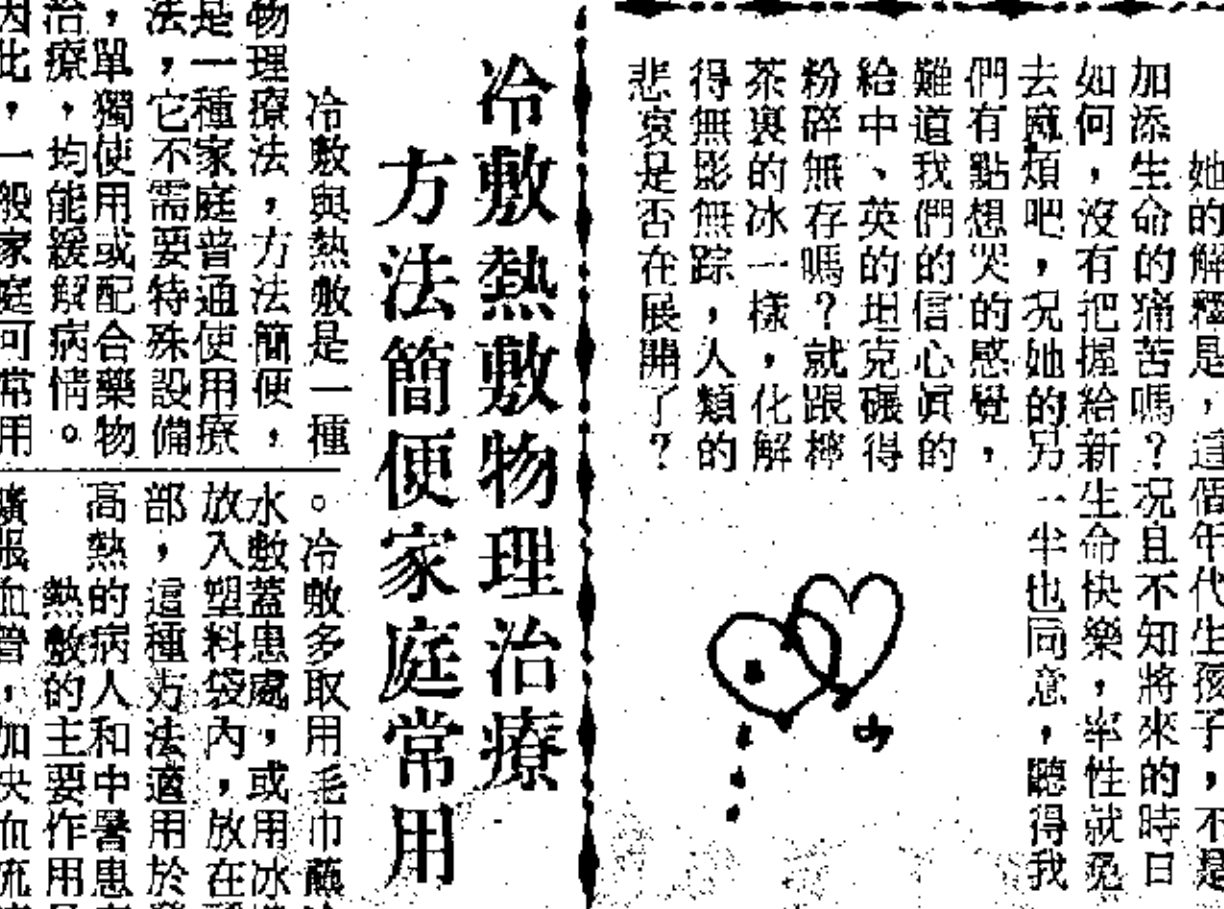 她的解釋是，這個年代生孩子，不是
加添生命的痛苦嗎？况且不知將來的時日
如何，沒有把握給新生命快樂，率性就免
去麻煩吧，况她的另一半也同意，聽得我
們有點想哭的感覺，
難道我們的信心眞的
給中、英的坦克碾得
粉碎無存嗎？就跟檸
茶裏的冰一樣，化解
得無影無踪，人類的
悲哀是否在展開了？
冷敷熱敷物理治療
方法簡便家庭常用
冷敷與熱敷是一種
物理療法，方法簡便，
是一種家庭普通使用療
法，它不需要特殊設備
，單獨使用或配合藥物
治療，均能緩解病情。
因此，一般家庭可常用
。冷敷多取用毛巾蘸冷
水敷蓋患處，或用冰塊
放入塑料袋內，放在
部，這種方法適用於發
高熱的病人和中暑患者
熱敷的主要作用是
擴張血管，加快血流